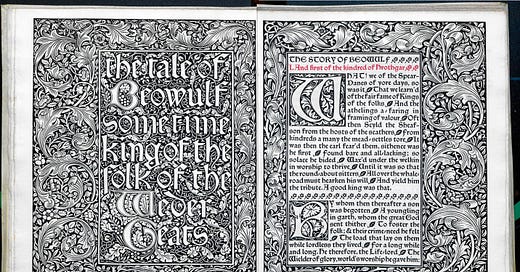 The tale of
Beowulf
sometime
king of the
folk of the
Weder
Geats
THE STORY OF BEOWULF
I. And first of the kindred of Hrothgar
WHAT! we of the Spear-
Danes of yore days, so
was it That we learn'd
of the fair fame of Kings
of the folks And the
athelings a-faring in
framing of valour. Oft
then Scyld the Sheaf-
son from the hosts of the scathers, From
kindreds a many the mead-settles tore; It
was then the earl fear'd them, sithence was
he first Found bare and all-lacking; so
solace he bided Wax'd under the welkin
in worship to thrive, Until it was so that
the round-about sitters, All over the whale-
road must hearken his will And yield him
the tribute. A good king was that.
BY whom then thereafter a son
was begotten, A youngling
in garth, whom the great God
sent thither To foster the
folk; & their crime-need he felt
The load that lay on them
while lordless they lived For a long while
and long. He therefore, the Life-lord, The
Wielder of glory, world's worship he gave him: